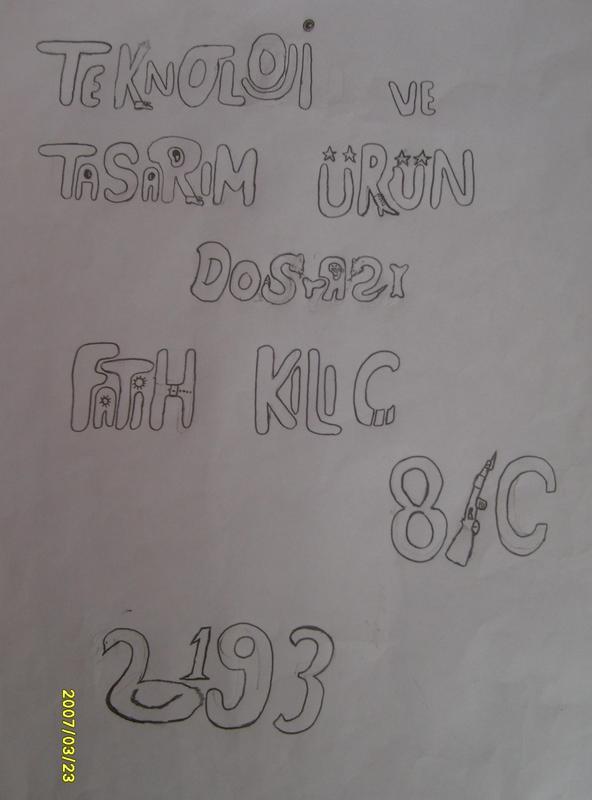 TEKNOLOJİ VE
TASARIM ÜRÜN
DOSYASI
FATİH KILIÇ
8/C
2193
2007/03/23